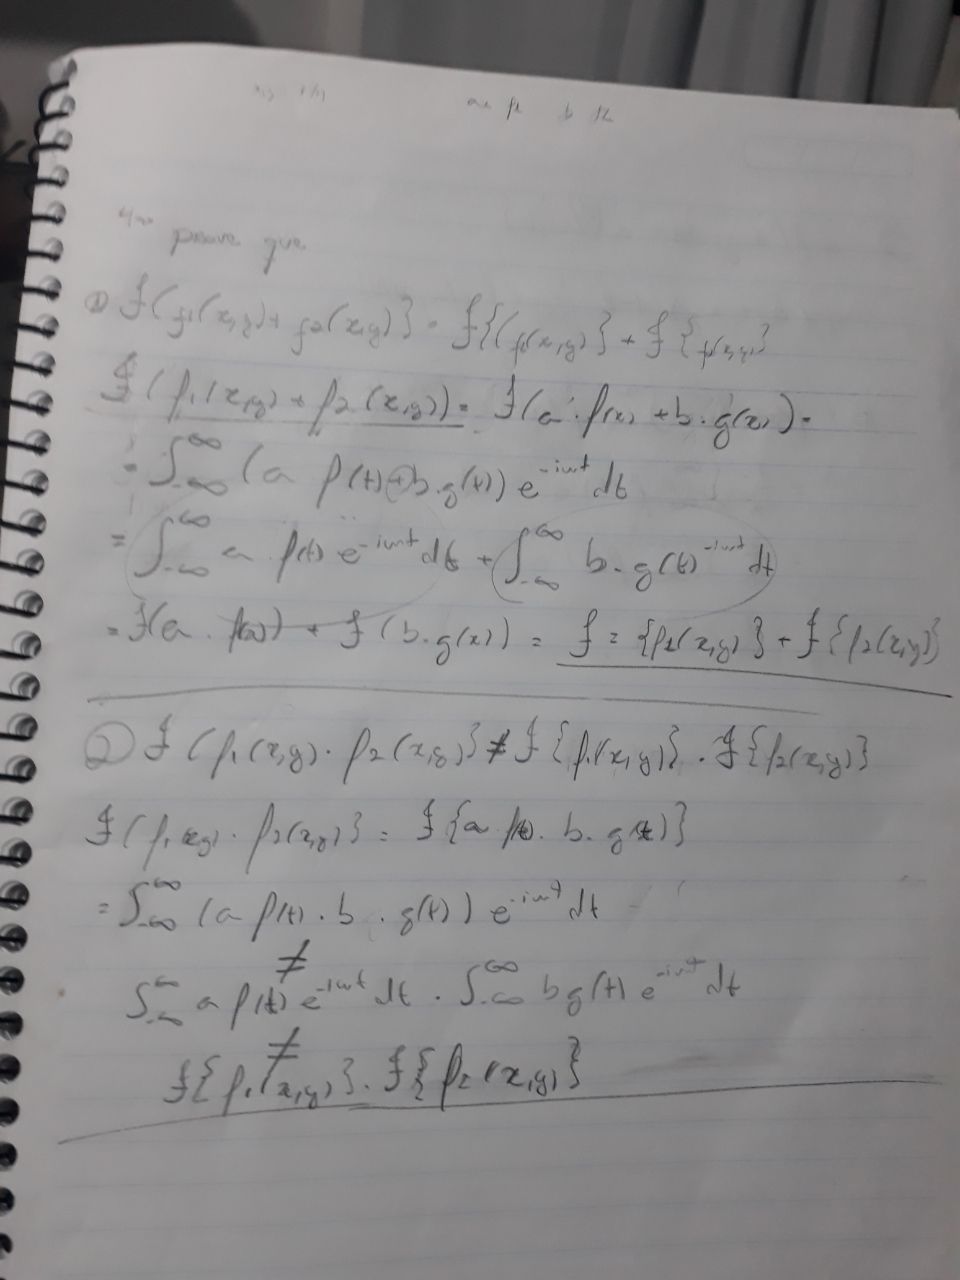 prove que
① f(f1(x,y)+f2(x,y)} = f{(f1(x,y)} + f{f2(x,y)}
f(f1(x,y)+f2(x,y)) = f(a·f(x)+b·g(x)) =
= ∫-∞^∞ (a f(t)+b.g(t)) e^-iwt dt
= ∫-∞^∞ a . f(t) e^-iwt dt + ∫-∞^∞ b. g(t)^-iwt dt
= f(a . f(x)) + f(b.g(x)) = f = {f1(x,y)} + f{f2(x,y)}
② f(f1(x,y) . f2(x,y)} ≠ f{f1(x,y)} . f{f2(x,y)}
f(f1(x,y) . f2(x,y)} = f{a f(t). b. g(t)}
= ∫-∞^∞ (a f(t) . b . g(t)) e^-iwt dt
≠
∫-∞^∞ a f(t) e^-iwt dt . ∫-∞^∞ b g(t) e^-iwt dt
≠
f{f1(x,y)}. f{f2(x,y)}